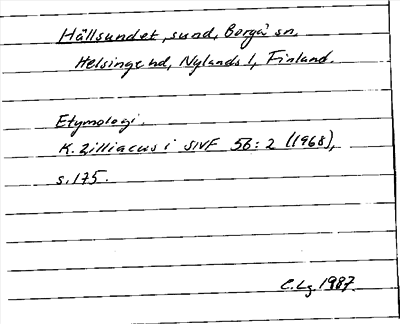 Hällsundet, sund, Borgå sn,
Helsinge hd, Nylands l, Finland.
Etymologi.
K. Zilliacus i SNF 56:2 (1968),
s. 175.
C. Lg 1987.